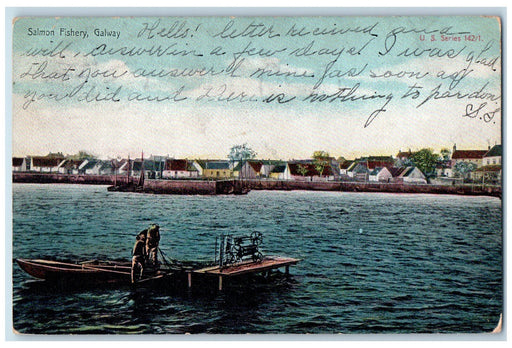 Salmon Fishery, Galway
U. S. Series 142/1.
Hello! letter received and
will answer in a few days! I was glad
that you answered mine just as soon as
you did and there is nothing to pardon.
S.S.